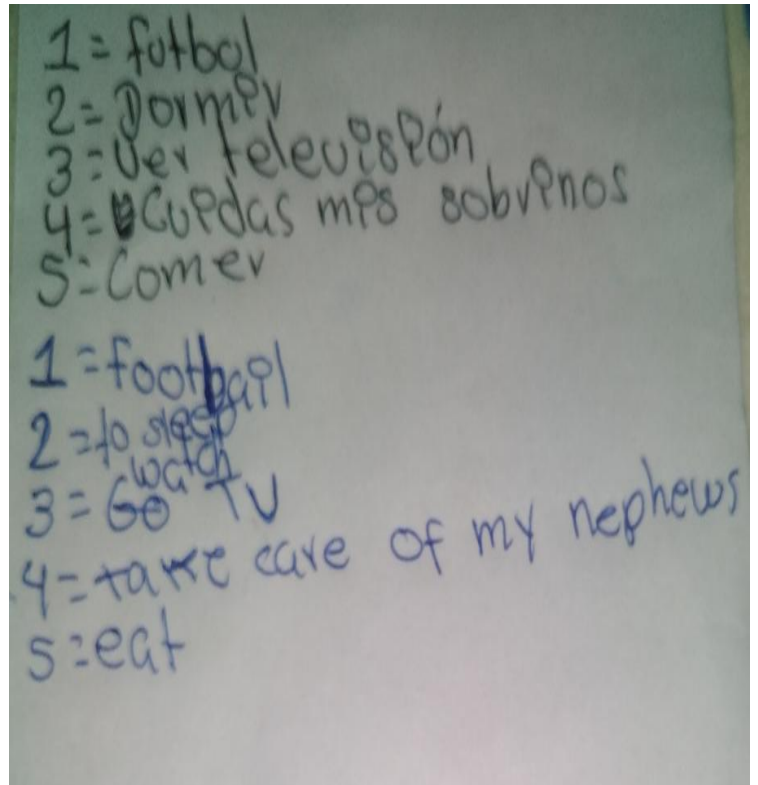 1= futbol
2= Dormir
3= Ver televisión
4= Cuidas mis sobrinos
5= Comer
1= football
2= to sleep
watch
3= Go TV
4= take care of my nephews
5= eat